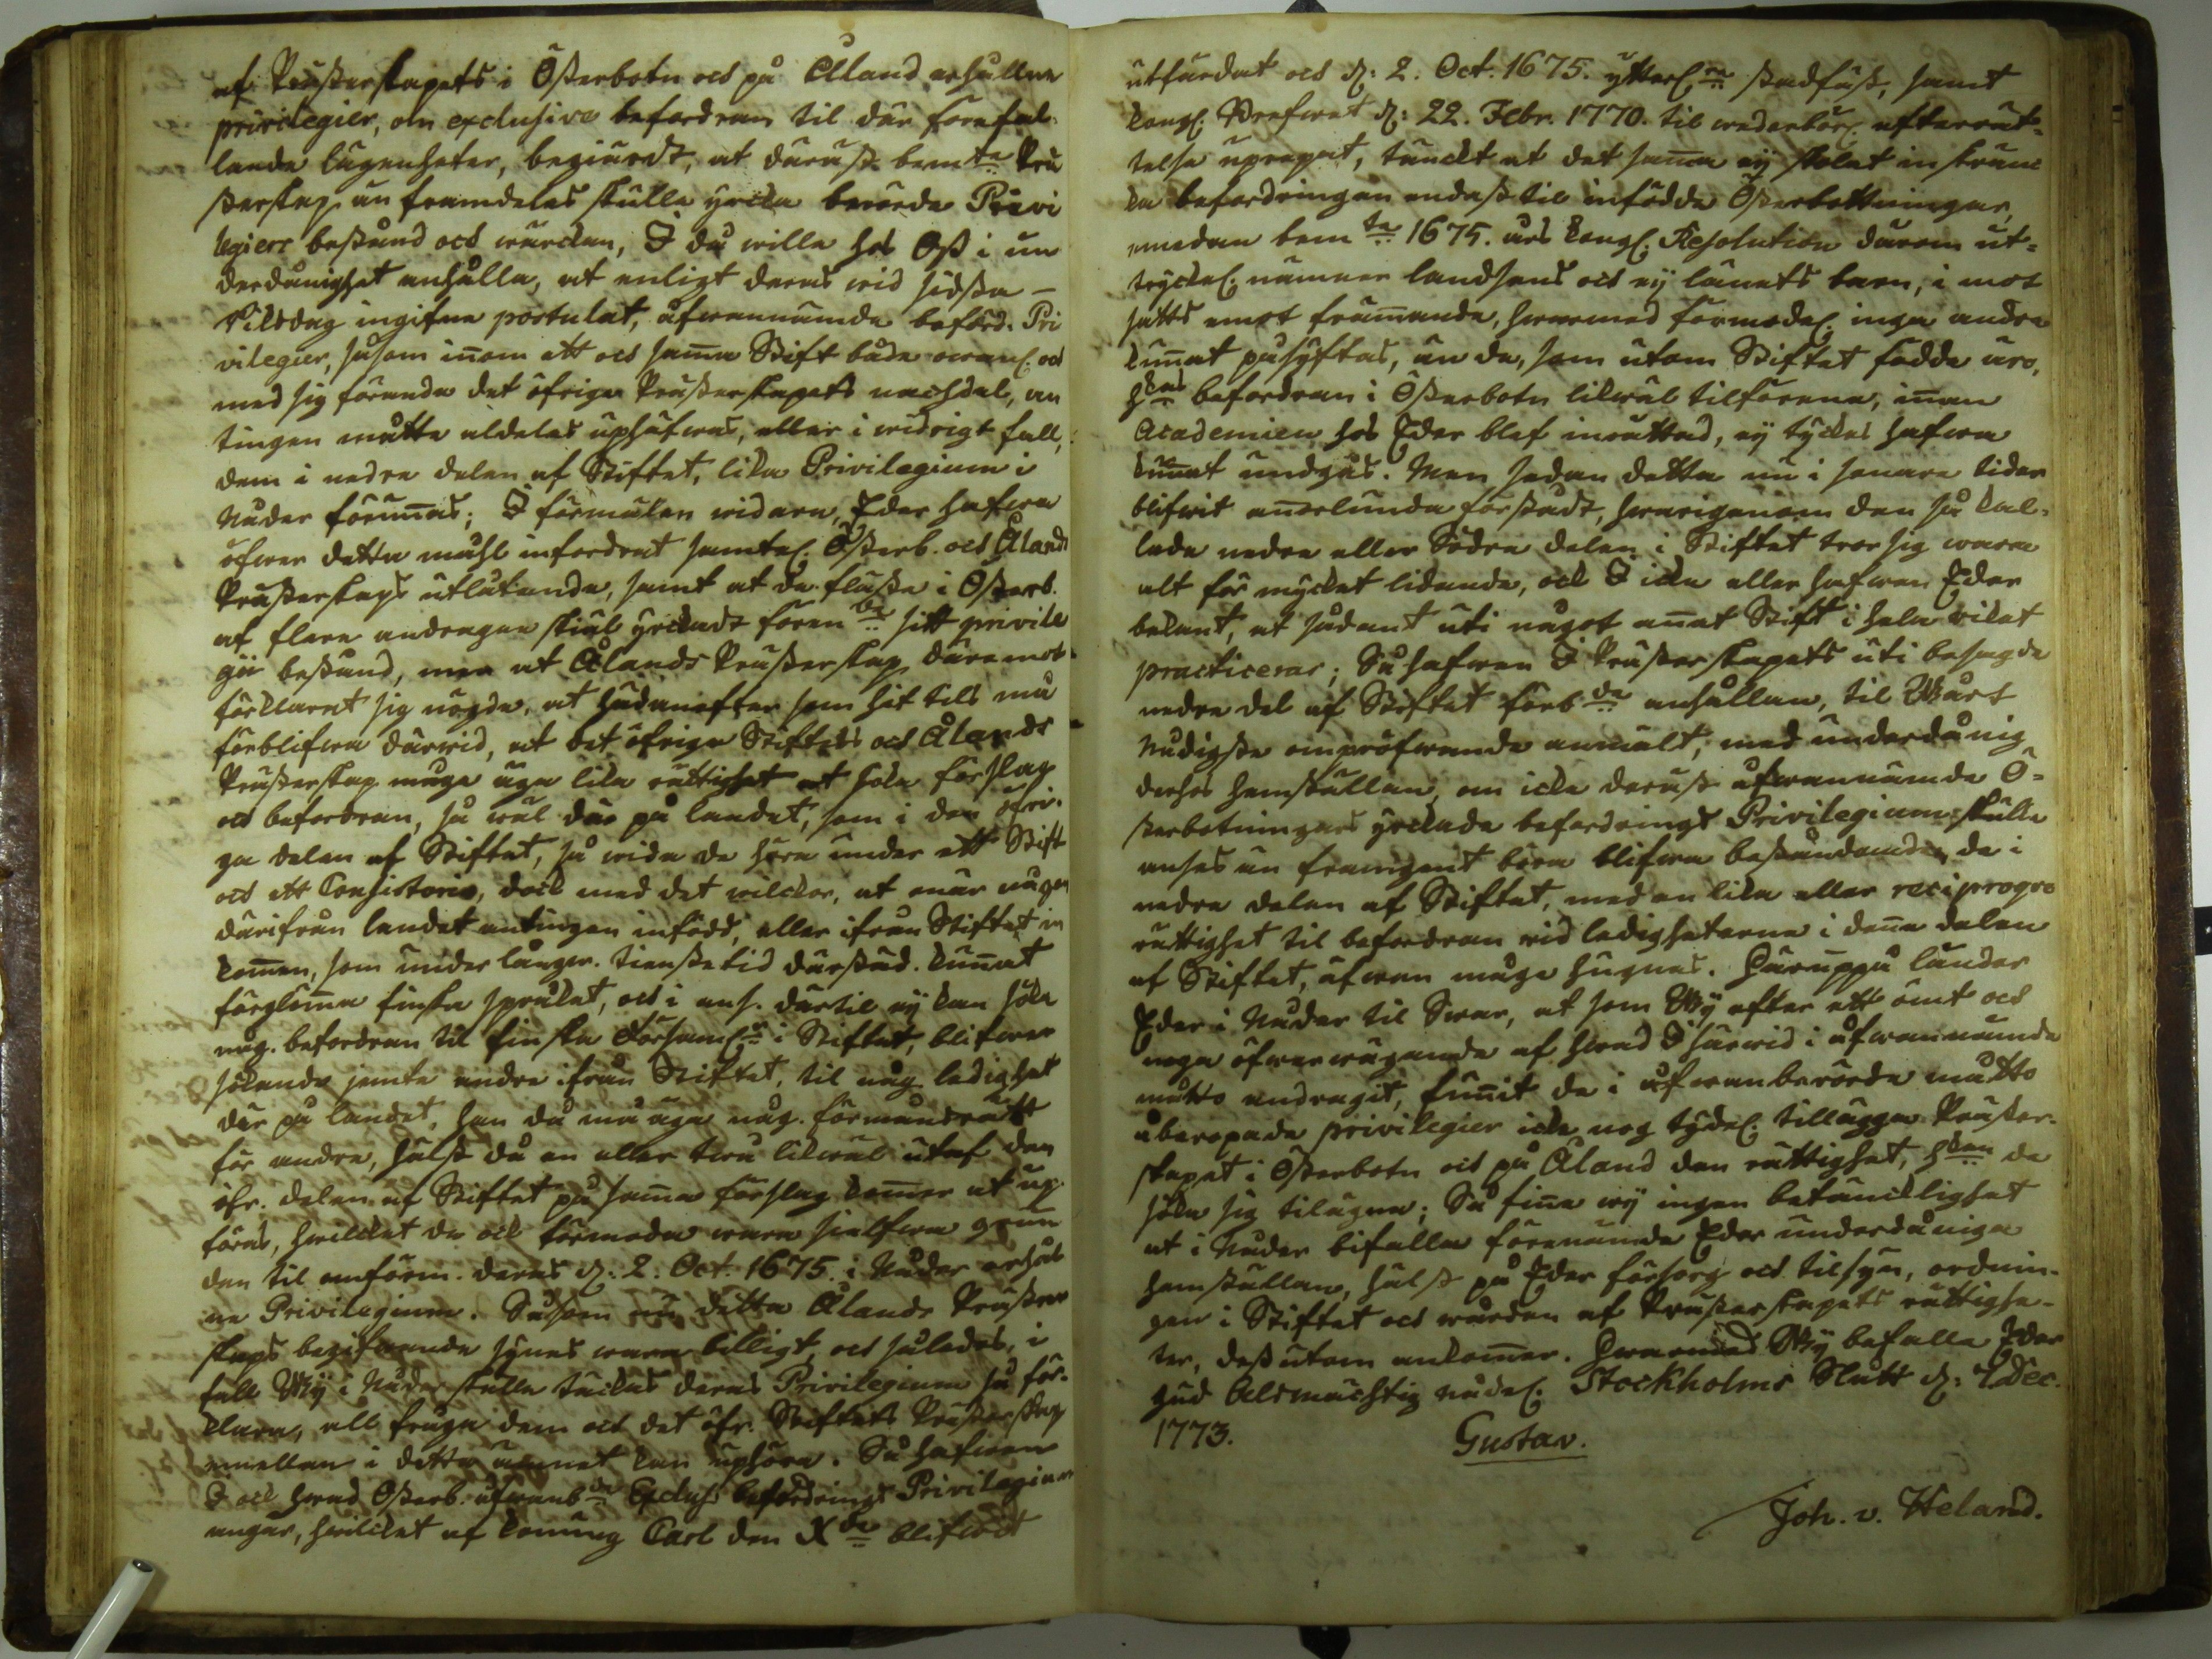 af Prästerskapets i Österbotn och på Åland erhållne
privilegier, om exclusive befordran til där forefal-
lande lägenheter, begärdt, at därest bemte Prä
sterskap än framdeles skulle yrcka berörde Privi
legiers bestånd och wärckan, I då wille hos Oss i un
derdånighet anhålla, at enligt deras wid sidsta -
Riksdag ingifne postulat, åfwannämde beförd. Pri
vilegier, såsom inom ett och samma Stift både owanl. och
med sig förande det öfriga Prästerskapets nachdel, an
tingen måtte aldeles uphäfwas, eller i widrigt fall,
dem i nedre delen af Stiftet, lika Privilegium i
Nåder förunnas; I förmälen widare, Eder hafwa
öfwer detta mål infordrat samtel. Österb. och Ålands
Prästerskaps utlåtande, samt at de flesta i Österb.
af flere andragne skiäl yrckadt forenbe sitt privile
gii bestånd, men at Ålands Prästerskap däremot
förklarat sig nögde, at hädanefter som hit tils må
förblifwa därwid, at det öfriga Stiftets och Ålands
Prästerskap måge äga lika rättighet at söka förslag
och befordran, så wäl där på landet, som i den öfri-
ga delen af Stiftet, så wida de höra under ett Stift
och ett Consistorio, dock med det wilckor, at enär någon
därifrån landet antingen infödd, eller ifrån Stiftet in
kommen, som under långw. tienstetid därstäd. kunnat
förglömma finska språket, och i ans. därtil ej kan söka
någ. befordran til finska Församl. i Stiftet, blifwer
sökande jemte andre ifrån Stiftet, til någ. ledighet
där på landet, han då må äga någ. förmånsrätt
för andra, hälst då en eller twå likwäl utaf den
öfr. delen af Stiftet på samma förslag kommer at up-
föras, hwilcket de och förmoda wara sielfwa grun
den til omförm. deras d: 2. Oct. 1675 i Nåder erhåll
ne Privilegium. Såsom nu detta Ålands Präster
skaps begifwande synes wara billigt, och således, i
fall Wij i Nåder skulle täckas deras Privilegium så för-
klara, all fråga dem och det öfr. Stiftets Prästerskap
emellan i detta ämnet kan uphöra. Så hafwen
I och hwad Österb. åfwanbde Exclus. befordrings Privilegium
angår, hwilcket af Konung Carl den XIde blifwit
utfärdat och d: 2. Oct. 1675. ytterl. stadfäst, samt
Kongl. Brefwet d: 22. Febr. 1770. til wederbör. efterrät-
telse uprepat, tänckt at det samma ej skolat inskränc
ka befordringen endast til infödde Österbottningar,
emedan bemte 1675. års Kongl. Resolution därom ut-
tryckel. nämner landsens och ej länets barn, i mot
satts emot främande, hwarmed förmodel. inga andra
kunnat påsyftas, än de, som utom Stiftet födde äro,
hwars befordran i Österbotn likwäl tilförene, innan
Academien hos Eder blef inrättad, ej tyckes hafwa
kunnat undgås. Men sedan detta nu i senare tider
blifwit annorlunda förstådt, hwarigenom den så kal-
lade nedre eller Södra delen i Stiftet tror sig wara
alt för mycket lidande, och I icke eller hafwen Eder
bekant, at sådant uti något annat Stift i hela riket
practiceras; Så hafwen I Prästerskapets uti besagde
nedre del af Stiftet förbde anhållan, til Wårt
Nådigste ompröfwande anmält, med underdånig
derhos hemställan, om icke derest åfwannämde Ö-
sterbotningars yrckade befordrings Privilegium skulle
anses än framgent böra blifwa beståndande, de i
nedre delen af Stiftet, med en lika eller reciproque
rättighet til befordran wid ledigheterne i denna delen
af Stiftet, äfwen måge hugnas. Häruppå länder
Eder i Nåder til Swar, at som Wij efter ett ömt och
noga öfwerwägande af hwad I härwid i åfwannämde
måtto andragit, funnit de i åfwanberörde måtto
åberopade privilegier icke nog tydel. tillägga Präster-
skapet i Österbotn och på Åland den rättighet, hwilken de
söka sig tilägna; Så finne wij ingen betäncklighet
at i Nåder bifalla förenämde Eder underdåniga
hemställan, hälst på Eder försorg och tilsyn, ordnin-
gen i Stiftet och wården af Prästerskapets rättighe-
ter, dessutom ankommer. Hwarmed Wij befalle Eder
Gud Alsmächtig nådel. Stockholms Slått d: 7. Dec.
1773. Gustav.
Joh. v. Heland.